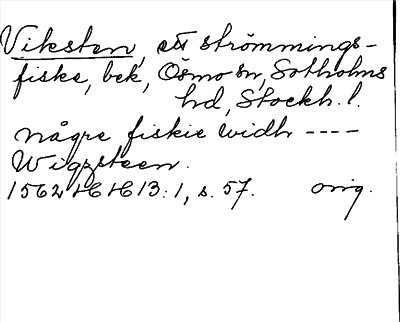 Viksten, ett strömmings-
fiske, bek, Ösmo sn, Sotholms
hd, Stockh. l.
någre fiskie widh ----
Wigzsteen.
1562 HH 13:1, s. 57. orig.